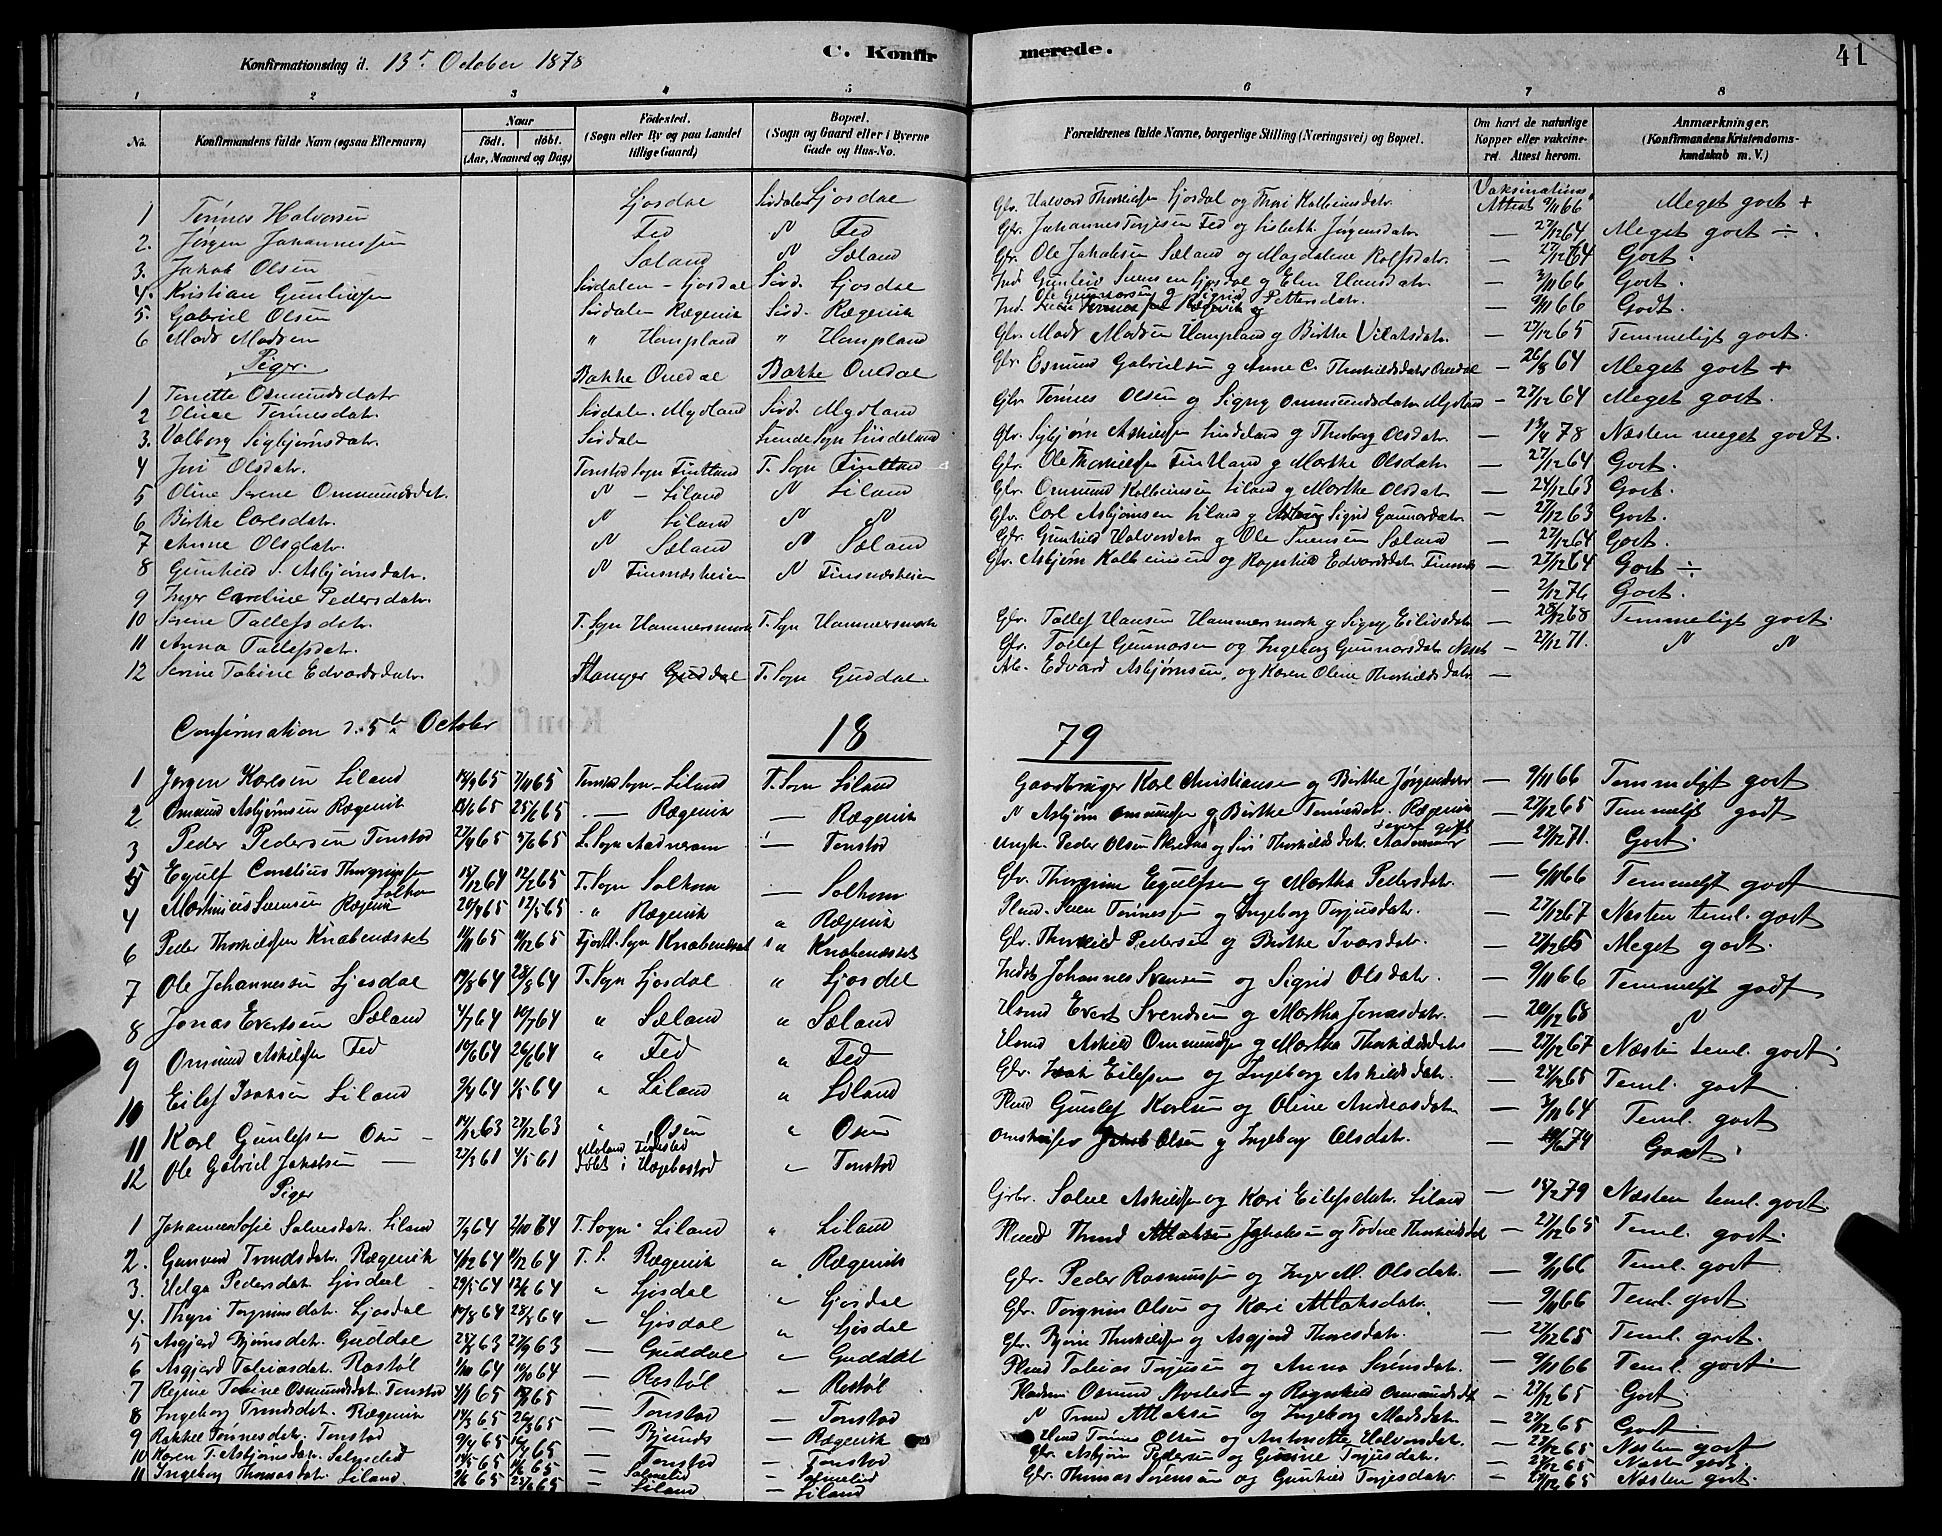 Konfirmationsdag d. 13de October 1878 C. Konfir merede. 41
1 2 3 4 5 6 7 8
No. Konfirmandens fulde Navn (ogsaa Efternavn) Naar født. døbt. (Aar, Maaned og Dag) Fødested. (Sogn eller By og paa Landet tillige Gaard) Bopæl. (Sogn og Gaard eller i Byerne Gade og Hus-No. Forældrenes fulde Navne, borgerlige Stilling (Næringsvei) og Bopæl. Om havt de naturlige Kopper eller vakcineret. Attest herom. Anmærkninger. (Konfirmandens Kristendomskundskab m. V.)
1 Tønnes Halvorsen Ljosdal Sirdalen Ljosdal Gbr. Halvord Thorkildsen Ljosdal og Thori Kolbeinsdatr. Vaksinations Attest 9/11 66 Meget godt +
2. Jørgen Johannessen Fed " Fed Gbr. Johannes Torjesen Fed og Lisbeth Jørgensdatr. — 27/12 64 Meget godt ÷.
3. Jakob Olsen Sæland " Sæland Gbr. Ole Jakobsen Sæland og Magdalene Rolfsdatr. — 27/12 64 Godt.
4. Kristian Gunleivsen Sirdalen - Ljosdal Sird. Ljosdal Ind. Gunleiv Svensen Ljosdal og Elen Hansdatr. — 3/11 66 Godt.
5 Gabriel Olsen Sirdalen Rægevik Sird. Rægevik Ind. Ole Gunnarsen g Sigrid Pettersdatr. — 9/11 66 Godt.
6 Mads Madsen " Haughland " Haughland Gbr. Mads Madsen Haughland g Birthe Vilatsdatr. — 27/12 65 Temmeligt godt.
Piger.
1 Tonette Osmundsdatr Bakke Ovedal Bakke Ovedal Gbr. Esmund Gabrielsen g Anne C. Thorkildsdatr Ovedal — 26/8 64 Meget godt +
2 Oline Tønnesdatr. Sirdalen. Mydland Sird. Mydland Gbr. Tønnes Olsen g Signy Ommundsdatr Mydland — 27/12 64 Meget godt.
3. Valborg Sigbjørnsdatr. Sirdalen Lunde Sogn Lindeland Gbr. Sigbjørn Askildsen Lindeland g Thorborg Olsdatr. — 13/4 78 Næsten meget godt.
4 Juri Olsdatr. Tonstad Sogn Fintland T. Sogn Fintland Gbr. Ole Thorkildsen Fintland g Marthe Olsdatr — 27/12 64 Godt.
5 Oline Serene Ommundsdatr. " - Liland " Liland Gbr. Ommund Kolbeinsen Liland g Marthe Olsdatr — 24/12 63 Godt.
6 Birthe Carlsdatr. " Liland " " Gbr. Carl Asbjørnsen Liland g Sigrid Gunnarsdatr. — 27/12 63 Godt.
7 Anne Olsdatr. " Sæland " Sæland Gbr. Gunhild Halvorsdatr g Ole Svensen Sæland — 27/12 64 Godt.
8 Gunhild S. Asbjørnsdatr. " Finsnæsheien " Finsnæsheien Gbr. Asbjørn Kolbeinsen og Ragnhild Edvardsdatr Finsnæs — 27/12 64 Godt ÷
9 Inger Caroline Pedersdatr. — 2/12 76 Godt.
10 Serene Tollefsdatr. T. Sogn Hammersmark T. Sogn Hammersmark Gbr. Tollef Hansen Hammersmark g Signy Eilivsdatr — 28/12 68 Temmeligt godt.
11 Anna Tollefsdatr. Gbr. Tollef Gunnarsen og Ingeborg Gunnarsdatr Næset — 27/12 71. " "
12 Serine Tobine Edvardsdatr. Stanger Guddal T. Sogn Guddal Arb. Edvard Asbjørnsen, og Karen Oline Thorkildsdatr —
Confirmation d. 5te October 18 79
1 Jørgen Karlsen Liland 18/9 65 7/11 65 Tonstad Sogn - Liland T. Sogn Liland Gaardbruger Karl Christiansen g Birthe Jørgensdatr — 9/11 66 Temmeligt godt
2 Omund Asbjørnsen Rægevik 13/6 65 25/6 65 . — Rægevik — Rægevik " Asbjørn Omundsen g Birthe Tønnesdtr. Rægevik — 27/12 65 Temmeligt godt
3 Peder Pedersen Tonstad 27/4 65 5/6 65 L. Sogn Aadneram — Tonstad Ungk. Peder Olsen og Siri Thorkildsdatr. Aadneram — 27/12 71. Godt.
5 Egulf Conelius Thorgrimsen Solhom 18/12 64 12/2 65 T. Sogn Solhom — Solhom Gbr. Thorgrim Egulfsen g Martha Pedersdatr. — 6/11 66 Temmeligt godt
4 Mathias Svensen Rægevik 20/4 65 12/5 65 " Rægevik " Rægevik Plmd. Sven Tønnessen g Ingeborg Torjusdatr. — 27/12 67 Næsten teml. godt
6 Peder Thorkildsen Knabenæset 10/11 65 10/12 65 Fjotl. Sogn Knabenæset " Knabenæset Gbr. Thorkild Pedersen g Birthe Ivarsdatr. — 27/12 65 Meget godt.
7 Ole Johannessen Ljosdal 14/8 64 28/8 64 T. Sogn Ljosdal " Ljosdal Indst. Johannes Svensen og Sigrid Olsdatr. — 9/11 66 Temmeligt godt
8 Jonas Evertsen Sæland 4/7 64 10/7 64 " Sæland " Sæland Husmd Evert Svendsen g Martha Jonasdatr. — 20/12 68 "
9 Omund Askildsen Fed 10/6 64 26/6 64 " Fed " Fed Husmd Askild Ommundsen g Martha Thorkildsdatr — 27/12 67 Næsten teml. godt.
10 Eilef Isaksen Liland 2/4 64 1/5 64 " Liland " Liland Gbr. Isak Eilefsen og Ingeborg Askildsdatr. — 24/12 65 Teml. godt.
11 Karl Gunlefsen Osen 14/12 63 27/12 63 " Osen " Osen Plmd Gunlef Karlsen og Oline Andreasdatr — 3/11 64 Teml. godt
12 Ole Gabriel Jakobsen — 27/3 61 4/5 61 døbt i Hægebostad " Tonstad Jakob Olsen g Ingeborg Olsdatr. — 10/6 74 Godt.
Piger
1 Johanne Sofie Salvesdatr. Liland 7/9 64 2/10 64 T. Sogn. Liland " Liland Gbr. Salve Askildsen og Kari Eilefsdatr. Liland — 15/2 79 Næsten teml. godt.
2. Gunvund Trondsdatr. Rægevik 4/12 64 11/12 64 T. S. Rægevik " Rægevik Plmd Thrond Atlaksen og Todne Thorkildsdat — 27/12 65 Teml. godt.
3. Helga Pedersdatr. Ljosdal 29/5 64 12/6 64 " Ljosdal " Ljosdal Gbr. Peder Rasmussen og Inger M. Olsdatr. — 9/11 66 Teml. godt.
4. Thyri Torgrimsdatr. Ljosdal 10/8 64 28/8 64 — Ljosdal " Ljosdal Gbr. Torgrim Olsen og Kari Atlaksdatr. — 9/11 66 Teml. godt
5 Asgjerd Bjørnsdatr. Guddal 28/8 63 27/9 63 — Guddal — Guddal Gbr. Bjørn Thorkildsen og Asgjerd Thoresdatr. — 27/12 65 Teml. godt.
6 Asgjerd Tobiasdatr. Rostøl 1/10 64 10/10 64 — Rostøl — Rostøl Plmd Tobias Torjesen og Anna Sørensdatr. — 9/11 66 Teml. godt.
7 Regine Tobine Osmundsdatr. Tonstad 4/1 65 65 — Tonstad — Tonstad Osmund og Ragnhild Osmundsdatr — 27/12 65 Godt.
8 Ingeborg Trondsdatr. Rægevik 14/3 65 26/3 65 — — Rægevik " Trond Atlaksen og Ingeborg Madsdatr — 27/12 65 Godt.
9 Rakkel Tønnesdatr. Tonstad 9/4 65 65 — Tonstad — Tonstad Husmd Tønnes Olsen og Antonette Halvorsdatr. — 27/12 65 Næsten godt
10 Karen T. Asbjørnsdatr. Salmelid 14/5 65 65 — Salmelid — Salmelid Gbr. Asbjørn Pedersen og Gesine Torjusdatr. — 27/12 65 Næsten godt.
11 Ingeborg Thomasdatr. Liland 9/6 65 25/6 65 — Liland — Liland Gbr. Thomas Sørensen og Gunhild Torjesdatr. — 27/12 65 Næsten godt.